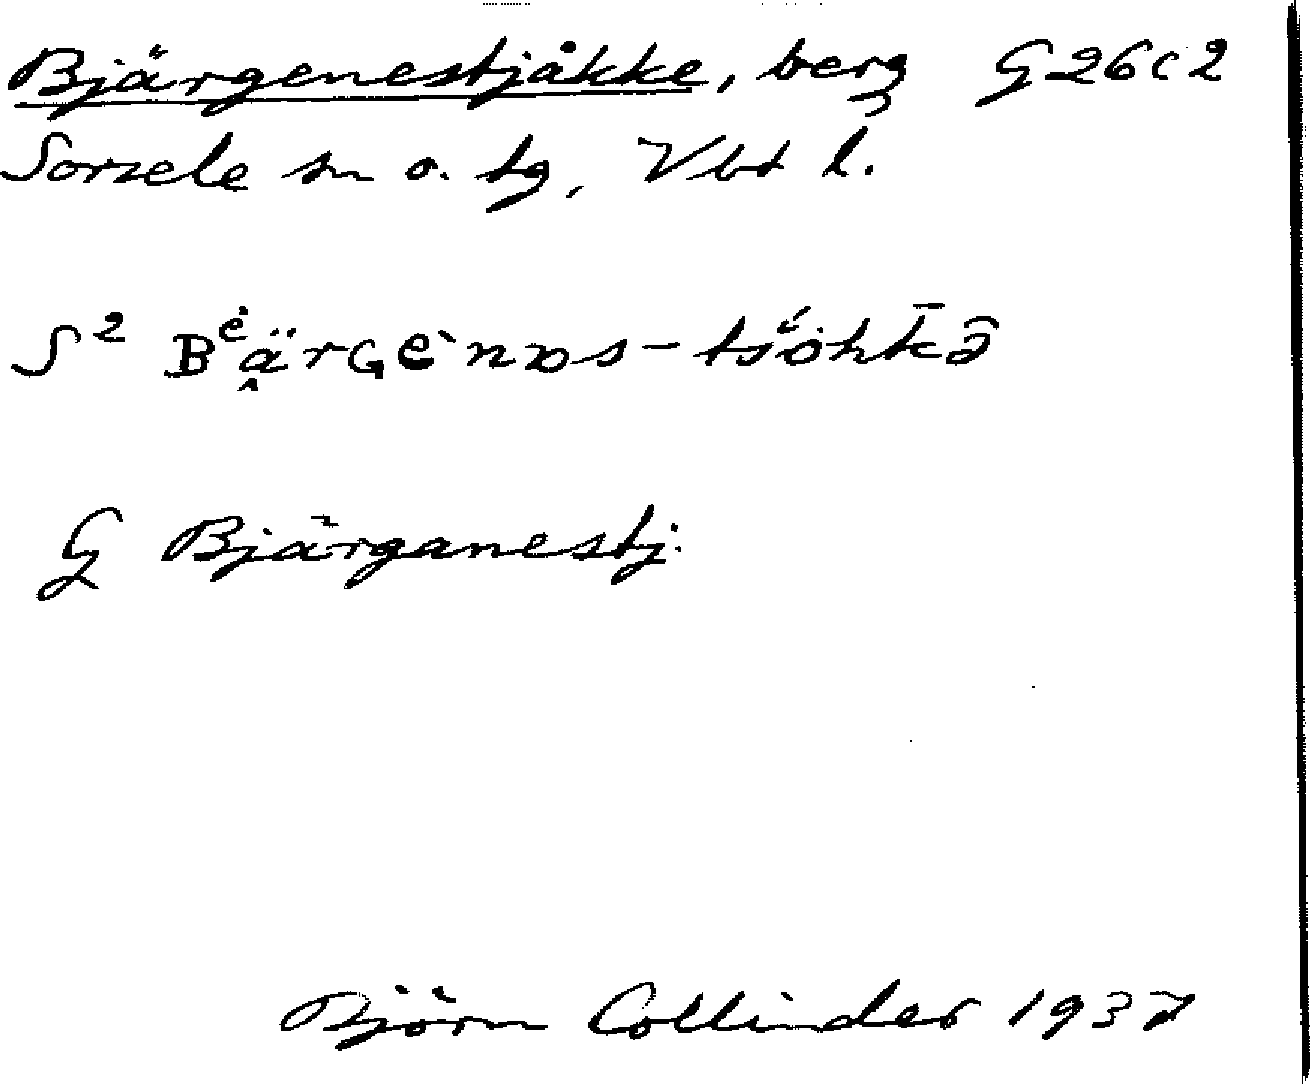 Bjärgenestjåkke, berg G 26 c 2
Sorsele sn o. tg, Vbt l.
S²
G Bjärganestj.
Björn Collinder 1937